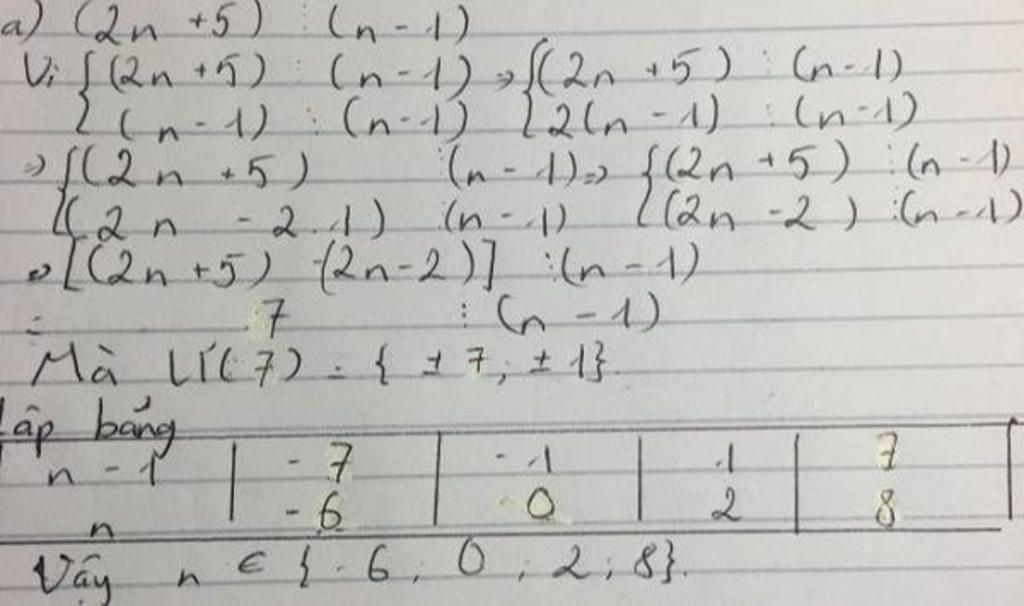 a) (2n + 5) ⋮ (n - 1)
Vì { (2n + 5) ⋮ (n - 1) => { (2n + 5) ⋮ (n - 1)
{ (n - 1) ⋮ (n - 1) { 2(n - 1) ⋮ (n - 1)
=> { (2n + 5) ⋮ (n - 1) => { (2n + 5) ⋮ (n - 1)
{ (2n - 2.1) ⋮ (n - 1) { (2n - 2) ⋮ (n - 1)
=> [(2n + 5) - (2n - 2)] ⋮ (n - 1)
= 7 ⋮ (n - 1)
Mà Ư(7) = { ± 7; ± 1}.
Lập bảng
n - 1 | - 7 | - 1 | 1 | 7
n | - 6 | 0 | 2 | 8
Vậy n ∈ { - 6; 0; 2; 8}.